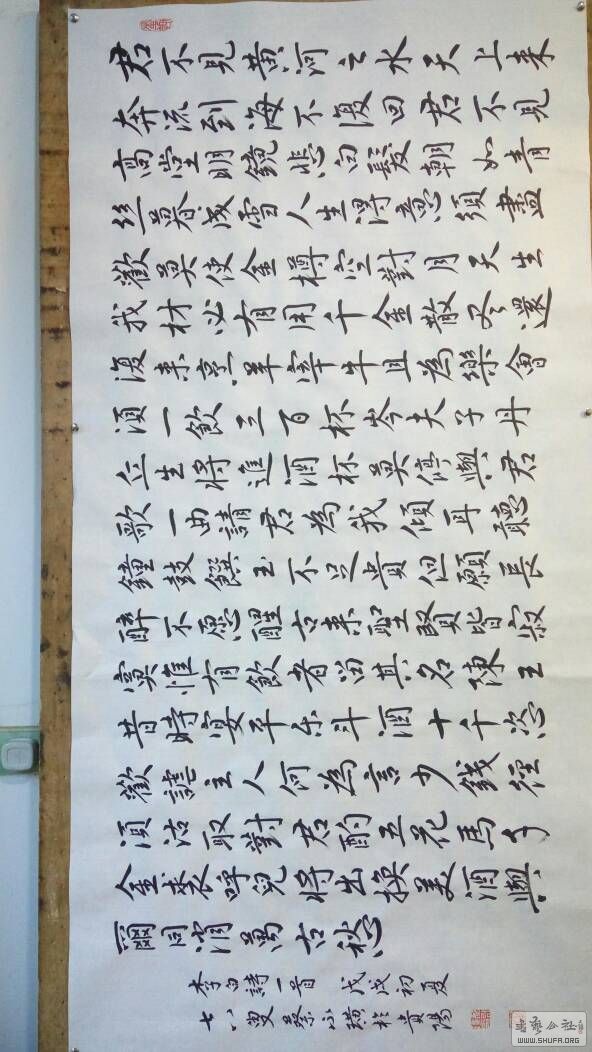 君不見黃河之水天上来
奔流到海不復回君不見
高堂明鏡悲白髮朝如青
丝暮成雪人生得意須盡
歡莫使金樽空對月天生
我材必有用千金散尽還
復来烹羊宰牛且為樂會
須一飲三百杯岑夫子丹
丘生将進酒杯莫停與君
歌一曲請君為我傾耳聽
鐘鼓饌玉不足貴但願長
醉不愿醒古来聖賢皆寂
寞惟有飲者留其名陳王
昔時宴平乐斗酒十千恣
歡謔主人何為言少錢徑
須沽取對君酌五花馬千
金裘呼兒将出换美酒與
爾同消萬古愁
李白詩一首 戊戌初夏
七八叟蔡永於貴陽
书艺公社
WWW.SHUFA.ORG